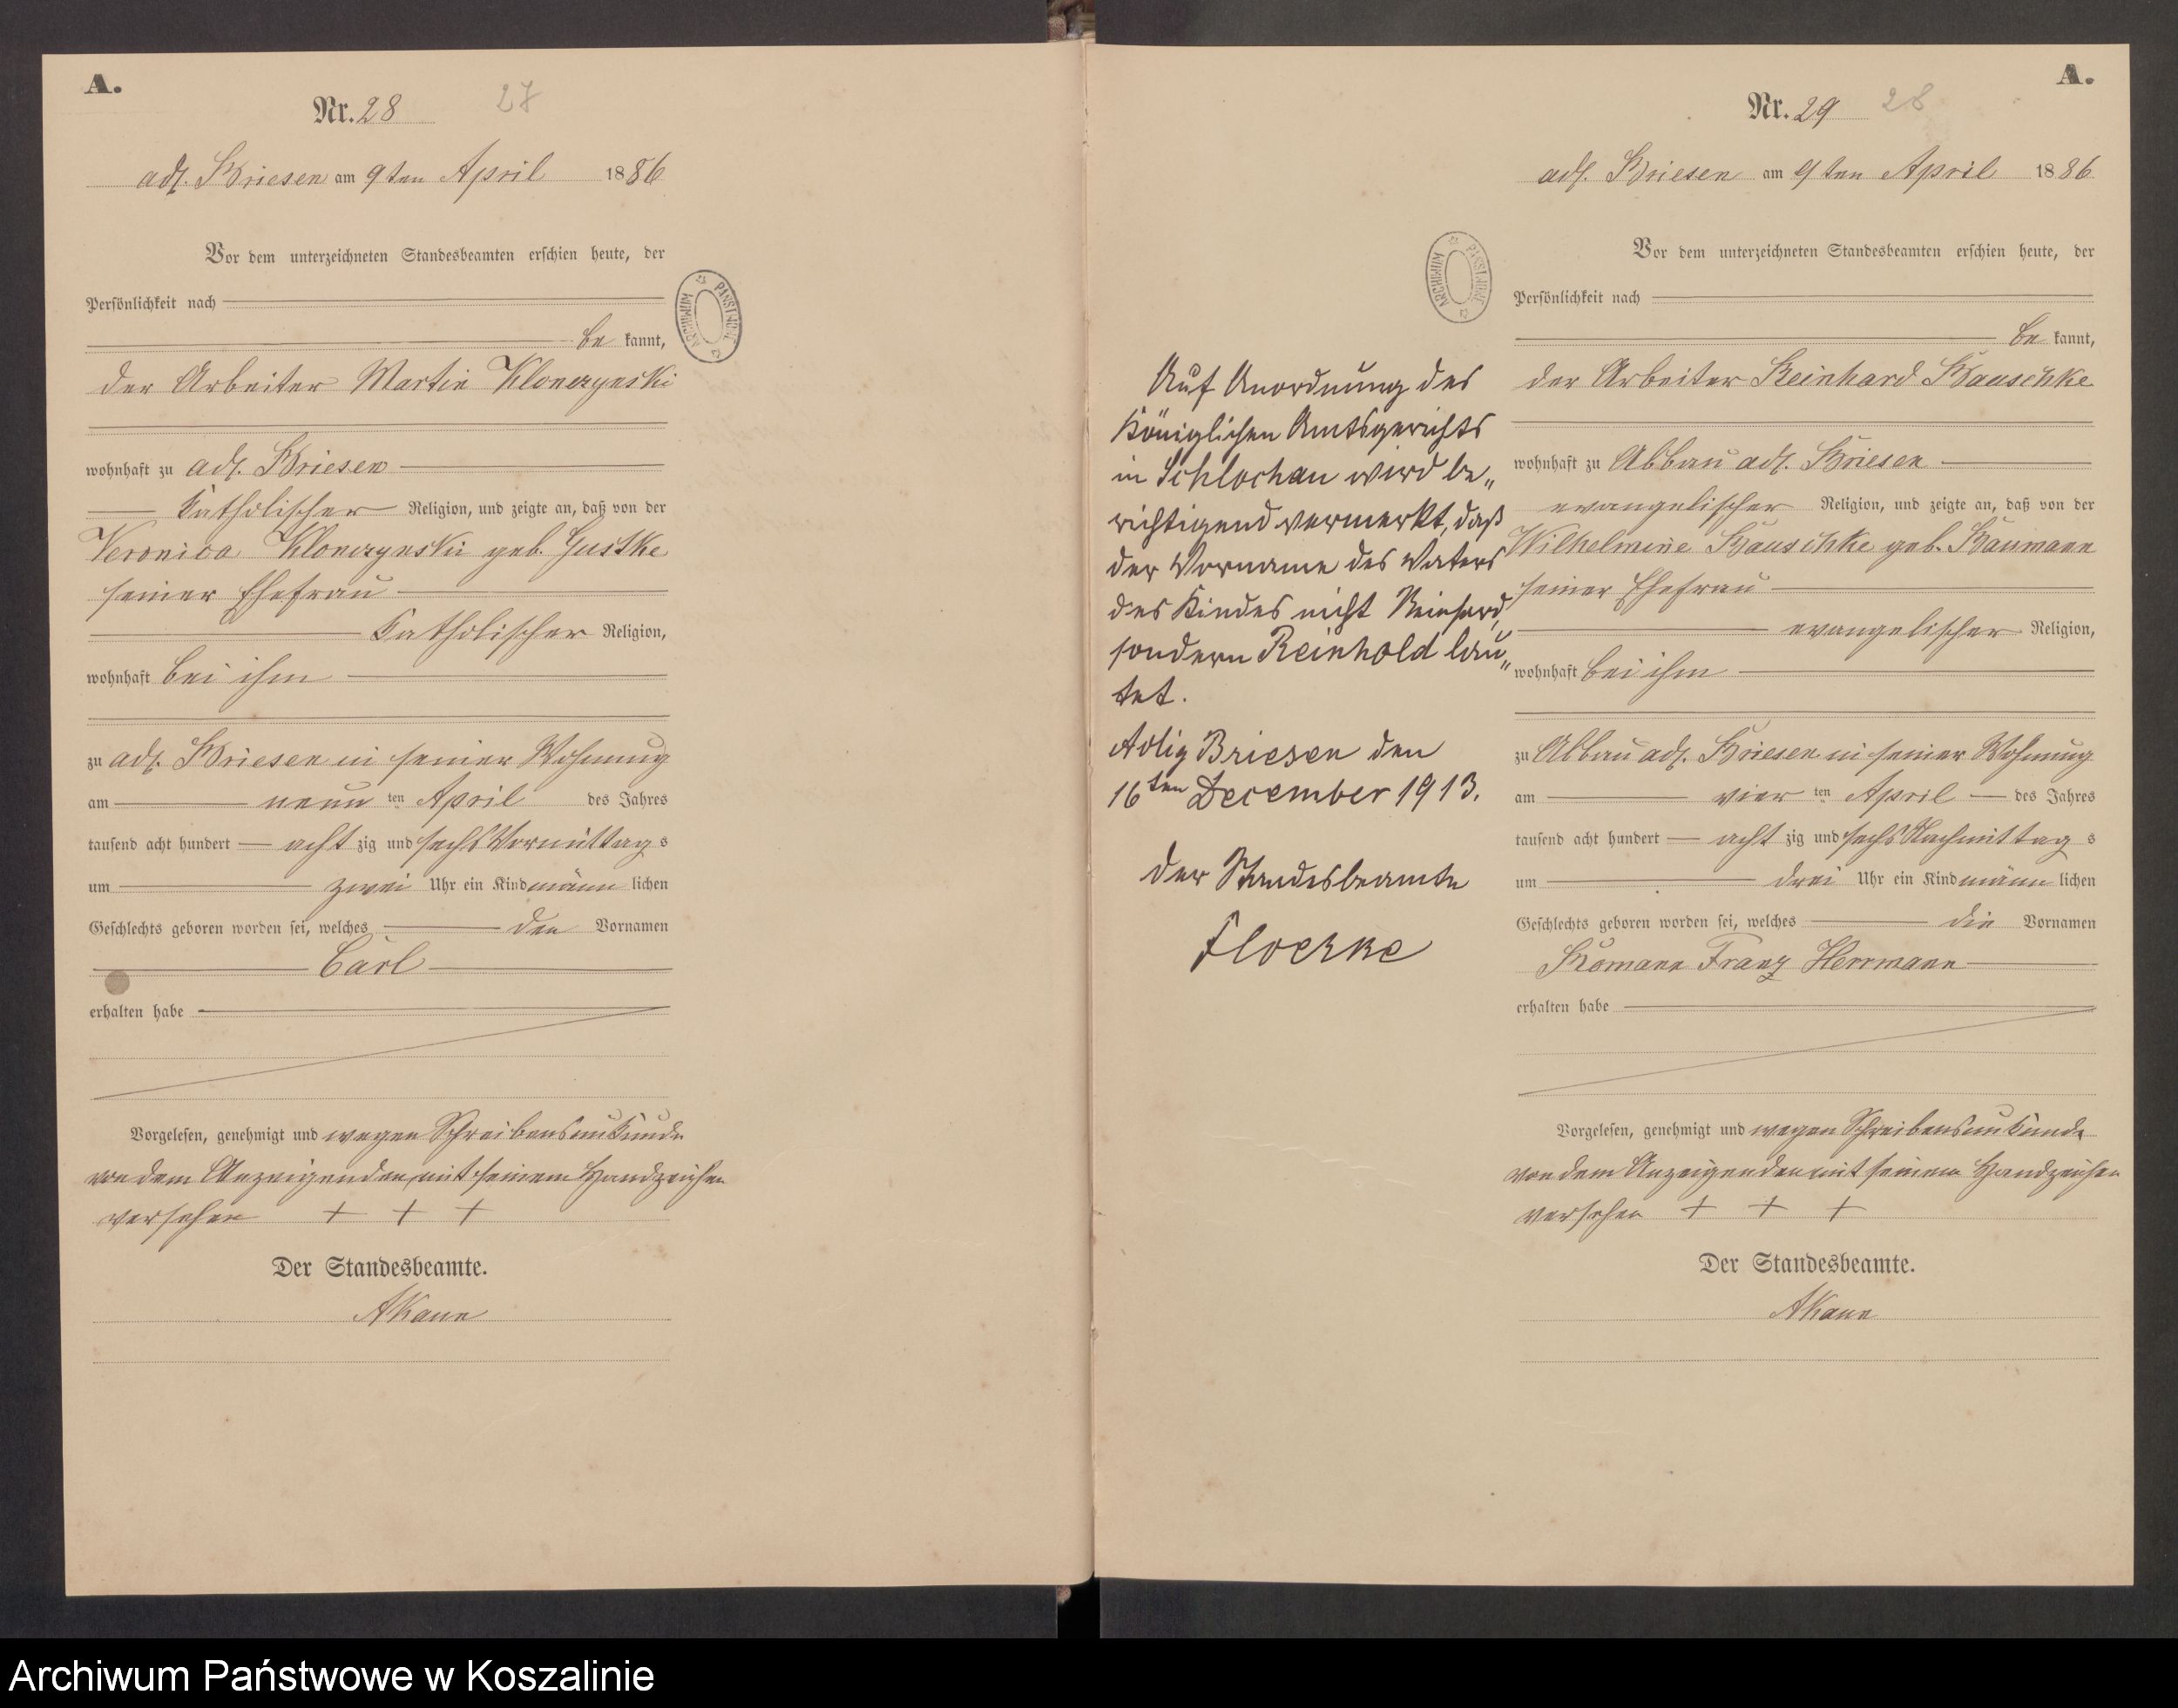 A.
Nr. 28 27
adl. Briesen am 9ten April 1886
Vor dem unterzeichneten Standesbeamten erschien heute, der
Persönlichkeit nach
be kannt,
der Arbeiter Martin Klonczynski
wohnhaft zu adl. Briesen
katholischer Religion, und zeigte an, daß von der
Veronica Klonczynski geb. Gustke
seiner Ehefrau
katholischer Religion,
wohnhaft bei ihm
zu adl. Briesen in seiner Wohnung
am neun ten April des Jahres
tausend acht hundert acht zig und sechs Vormittag s
um zwei Uhr ein Kind männ lichen
Geschlechts geboren worden sei, welches den Vornamen
Carl
erhalten habe
Vorgelesen, genehmigt und wegen Schreibensunkunde
von dem Anzeigenden mit seinem Handzeichen
versehen + + +
Der Standesbeamte.
AKane
PAŃSTWOWE
ARCHIWUM
A.
Nr. 29 28
adl. Briesen am 9ten April 1886
Vor dem unterzeichneten Standesbeamten erschien heute, der
Persönlichkeit nach
be kannt,
der Arbeiter Reinhard Bauschke
wohnhaft zu Abbau adl. Briesen
evangelischer Religion, und zeigte an, daß von der
Wilhelmine Bauschke geb. Baumann
seiner Ehefrau
evangelischer Religion,
wohnhaft bei ihm
zu Abbau adl. Briesen in seiner Wohnung
am vier ten April des Jahres
tausend acht hundert acht zig und sechs Nachmittag s
um drei Uhr ein Kind männ lichen
Geschlechts geboren worden sei, welches die Vornamen
Romann Franz Herrmann
erhalten habe
Vorgelesen, genehmigt und wegen Schreibensunkunde
von dem Anzeigenden mit seinem Handzeichen
versehen + + +
Der Standesbeamte.
AKane
PAŃSTWOWE
ARCHIWUM
Auf Anordnung des
Königlichen Amtsgerichts
in Schlochau wird be„
richtigend vermerkt, daß
der Vorname des Vaters
des Kindes nicht Reinhard,
sondern Reinhold lau„
tet.
Adlig Briesen den
16ten December 1913.
Der Standesbeamte
Floerke
Archiwum Państwowe w Koszalinie